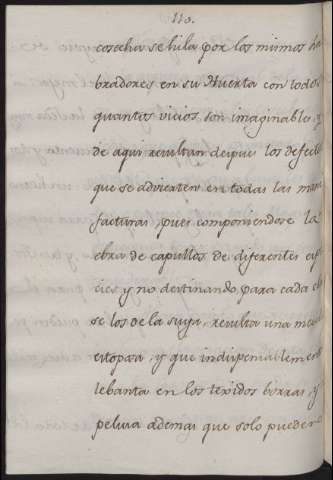 110.
cosecha se hila por los mismos la
bradores en su Huerta con todos
quantos vicios son imaginables, y
de aqui resultan despues los defect
que se advierten en todas las man
facturas, pues componiendose la
obra de capullos de diferentes esp
cies y no destinando para cada cl
se los de la suya, resulta una mez
estoposa, y que indispensablemente
lebanta en los texidos borras, y
pelusa ademas que solo pueden